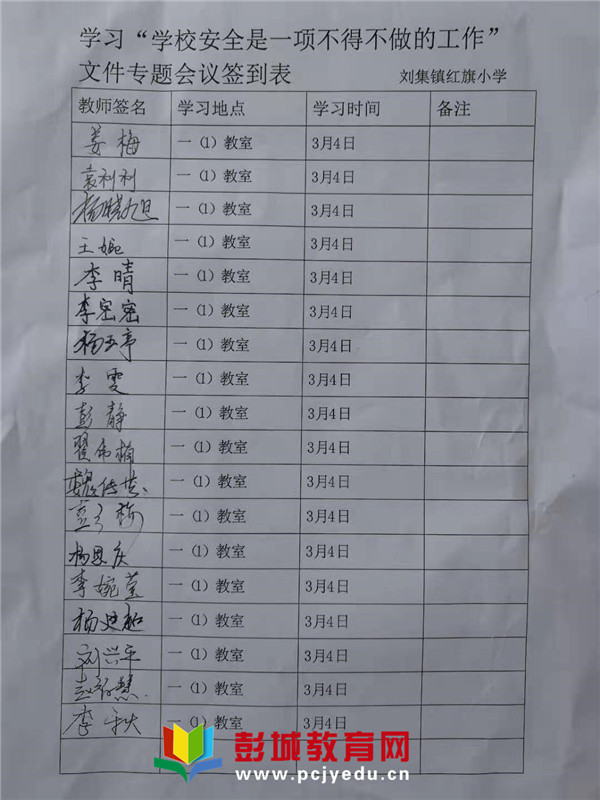 学习“学校安全是一项不得不做的工作”
文件专题会议签到表 刘集镇红旗小学
教师签名 学习地点 学习时间 备注
姜梅 一（1）教室 3月4日
袁利利 一（1）教室 3月4日
杨晓旭 一（1）教室 3月4日
王婉 一（1）教室 3月4日
李晴 一（1）教室 3月4日
李密密 一（1）教室 3月4日
杨玉亭 一（1）教室 3月4日
李雯 一（1）教室 3月4日
彭静 一（1）教室 3月4日
翟 楠 一（1）教室 3月4日
魏传 一（1）教室 3月4日
一（1）教室 3月4日
杨思庆 一（1）教室 3月4日
李婉莹 一（1）教室 3月4日
杨 一（1）教室 3月4日
刘兴平 一（1）教室 3月4日
赵 慧 一（1）教室 3月4日
李秋 一（1）教室 3月4日
彭城教育网
www.pcjyedu.cn